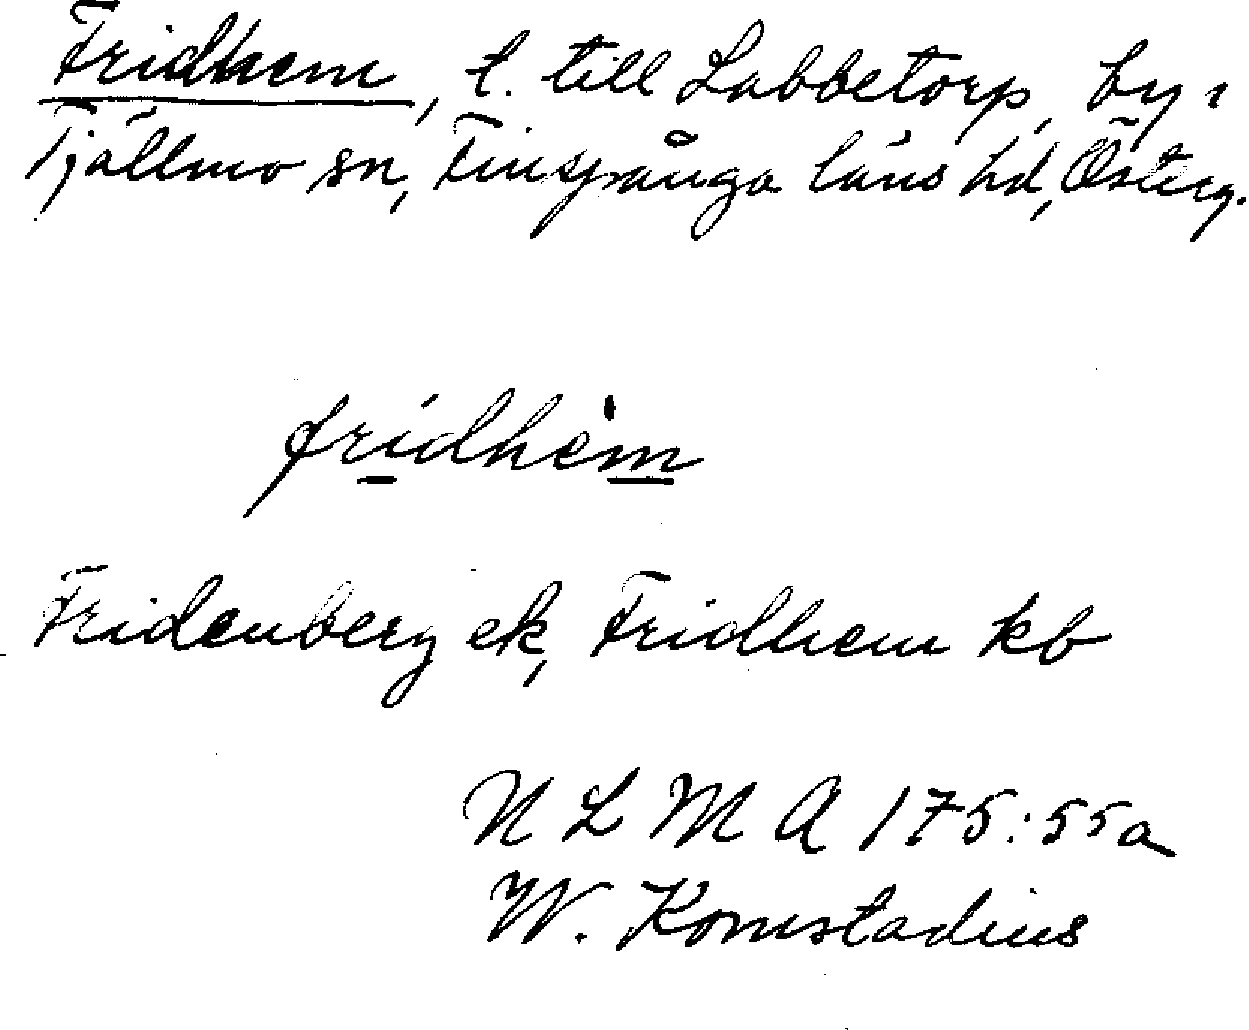 Fridhem, t. till Labbetorp, by i
Tjällmo sn, Finspånga läns hd, Österg.
fridhèm
Fridenberg ek, Fridhem kb
N L M A 175:55a
W. Komstadius